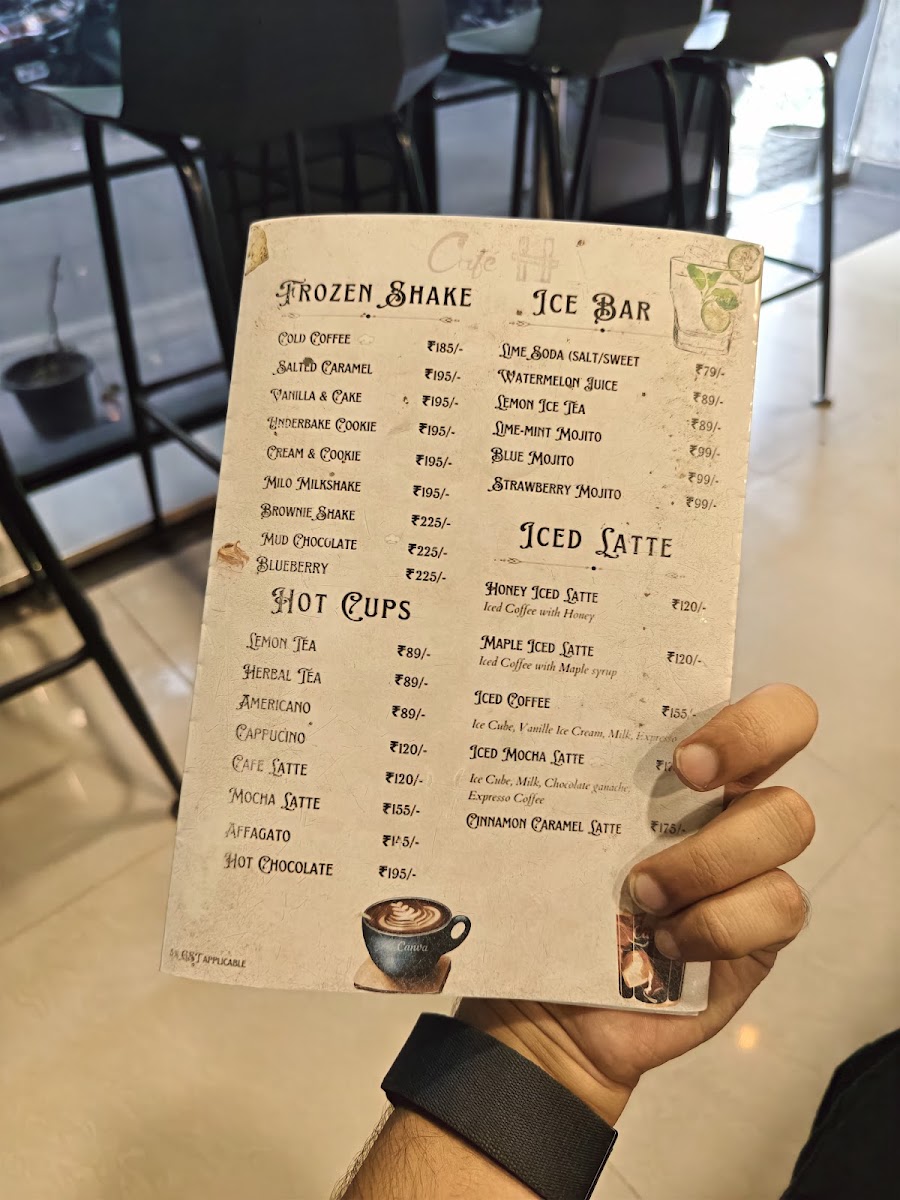 Café H
Frozen Shake
Cold Coffee ₹185/-
Salted Caramel ₹195/-
Vanilla & Cake ₹195/-
Underbake Cookie ₹195/-
Cream & Cookie ₹195/-
Milo Milkshake ₹195/-
Brownie Shake ₹225/-
Mud Chocolate ₹225/-
Blueberry ₹225/-
Hot Cups
Lemon Tea ₹89/-
Herbal Tea ₹89/-
Americano ₹89/-
Cappucino ₹120/-
Cafe Latte ₹120/-
Mocha Latte ₹155/-
Affagato
Hot Chocolate ₹195/-
Canva
GST applicable
Ice Bar
Lime Soda (Salt/Sweet ₹79/-
Watermelon Juice ₹89/-
Lemon Ice Tea ₹89/-
Lime-Mint Mojito ₹99/-
Blue Mojito ₹99/-
Strawberry Mojito ₹99/-
Iced Latte
Honey Iced Latte ₹120/-
Iced Coffee with Honey
Maple Iced Latte ₹120/-
Iced Coffee with Maple syrup
Iced Coffee ₹155/-
Ice Cube, Vanille Ice Cream, Milk, Expresso
Iced Mocha Latte
Ice Cube, Milk, Chocolate ganache,
Expresso Coffee
Cinnamon Caramel Latte ₹175/-